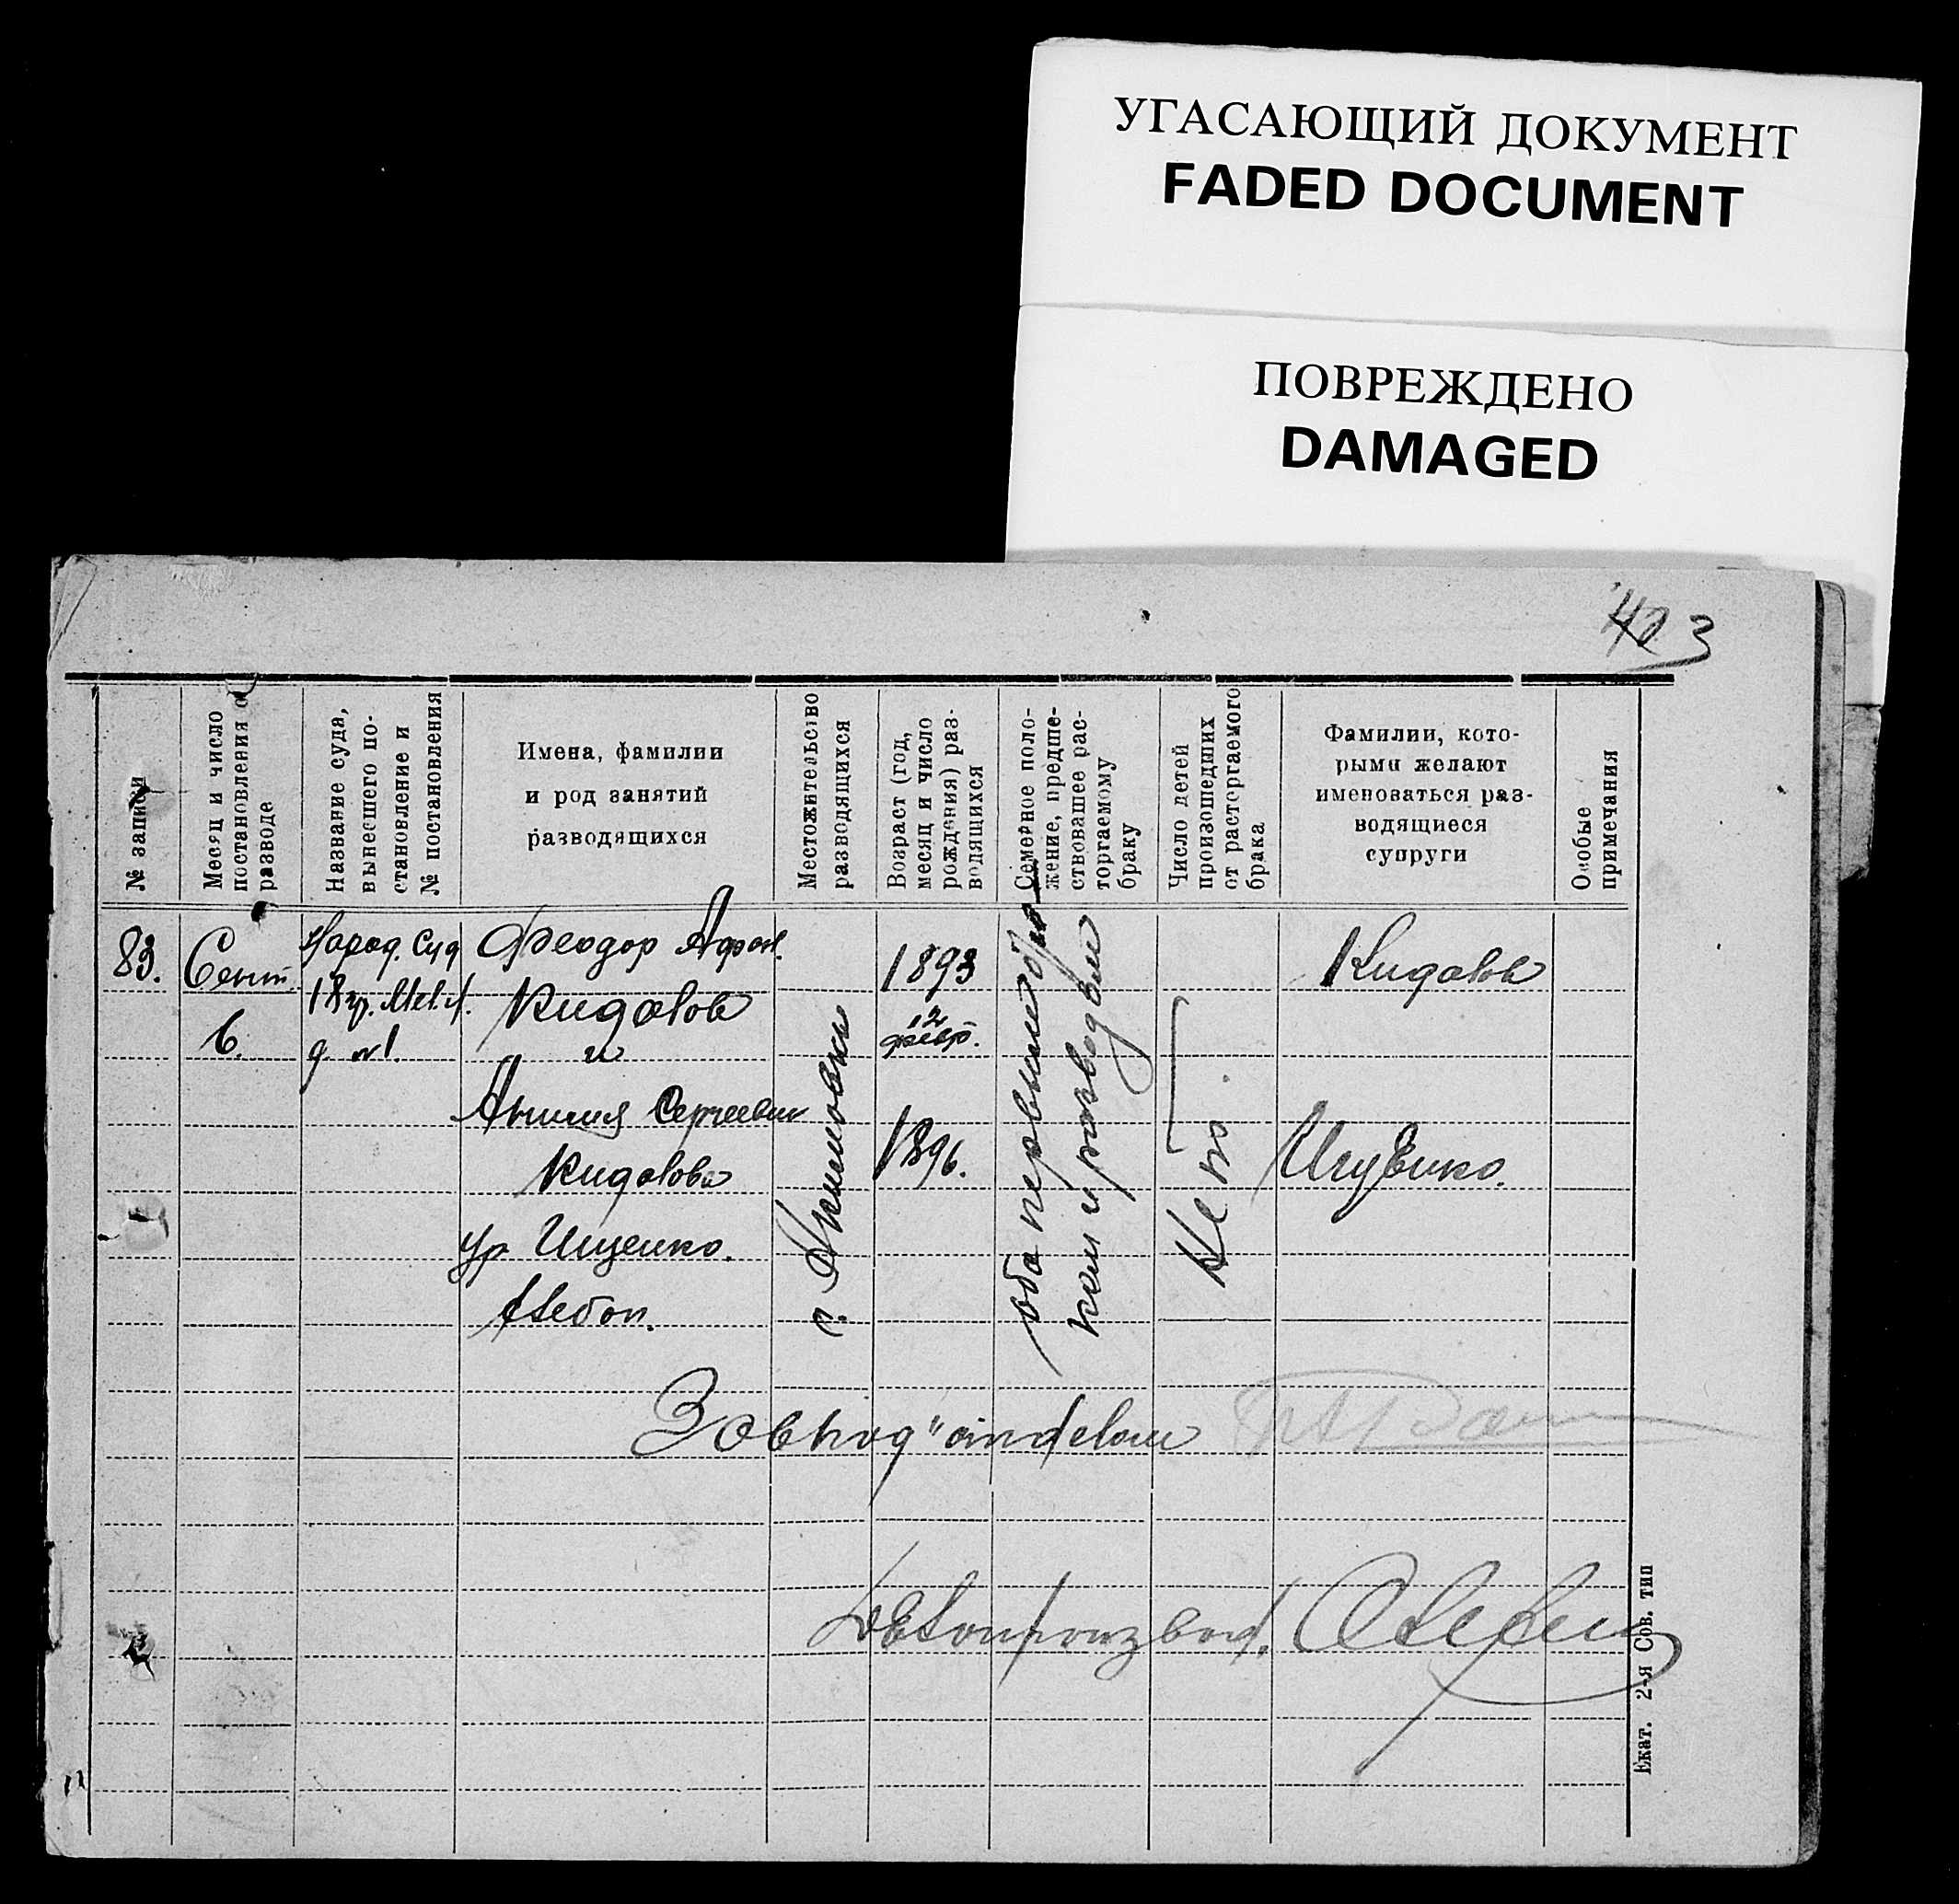 УГАСАЮЩИЙ ДОКУМЕНТ
FADED DOCUMENT
ПОВРЕЖДЕНО
DAMAGED
3
№ записи
Месяц и число
постановления о
разводе
Название суда,
вынесшего по-
становление и
№ постановления
Имена, фамилии
и род занятий
разводящихся
Местожительство
разводящихся
Возраст (год,
месяц и число
рождения) раз-
водящихся
Семейное поло-
жение, предше-
ствовавшее рас-
торгаемому
браку
Число детей
произошедших
от расторгаемого
брака
Фамилии, кото-
рыми желают
именоваться раз-
водящиеся
супруги
Особые
примечания
83.
Сент.
6.
Народ. Суд
Феодор Афан.
Кидалов
и
Сергеевна
Кидалова
ур Ищенко.
с. Акимовка
1893
12
февр.
1896.
оба первым бра
ком и разводом
Нет.
Кидалов
Ищенко.
Завпод"отделом
Делопроизвод.
Екат. 2-я Сов. тип